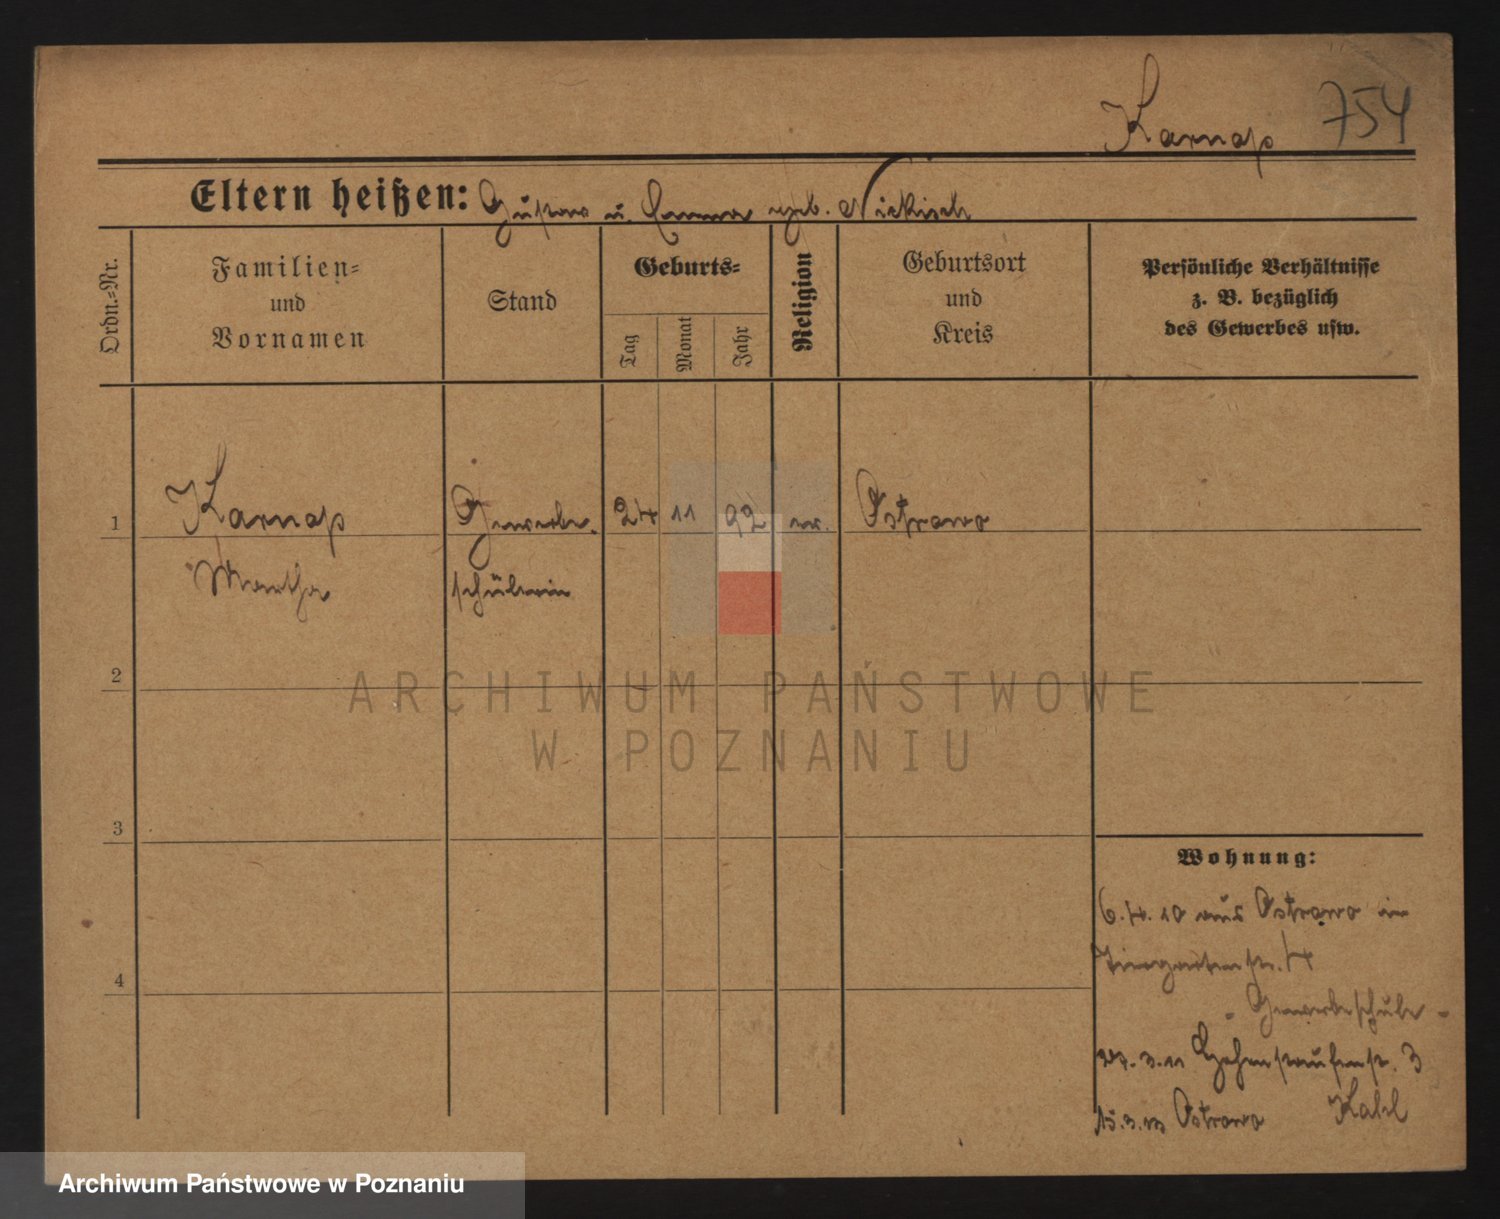 Karnap 754
Eltern heißen: Gustav u. Emma geb. Nickisch
Ordn.=Nr.
Familien=
und
Vornamen
Stand
Geburts=
Tag
Monat
Jahr
Religion
Geburtsort
und
Kreis
Persönliche Verhältnisse
z. B. bezüglich
des Gewerbes usw.
1 Karnap Gewerbe. 24 11 92 ev. Ostrowo
Martha schülerin
2
3
4
Wohnung:
6.4.10 aus Ostrowo in
Tiergartenstr. 4
- Gewerbeschule -
27.3.11 Hohenstaufenstr. 3
15.3.13 Ostrowo
ARCHIWUM PAŃSTWOWE
W POZNANIU
Archiwum Państwowe w Poznaniu